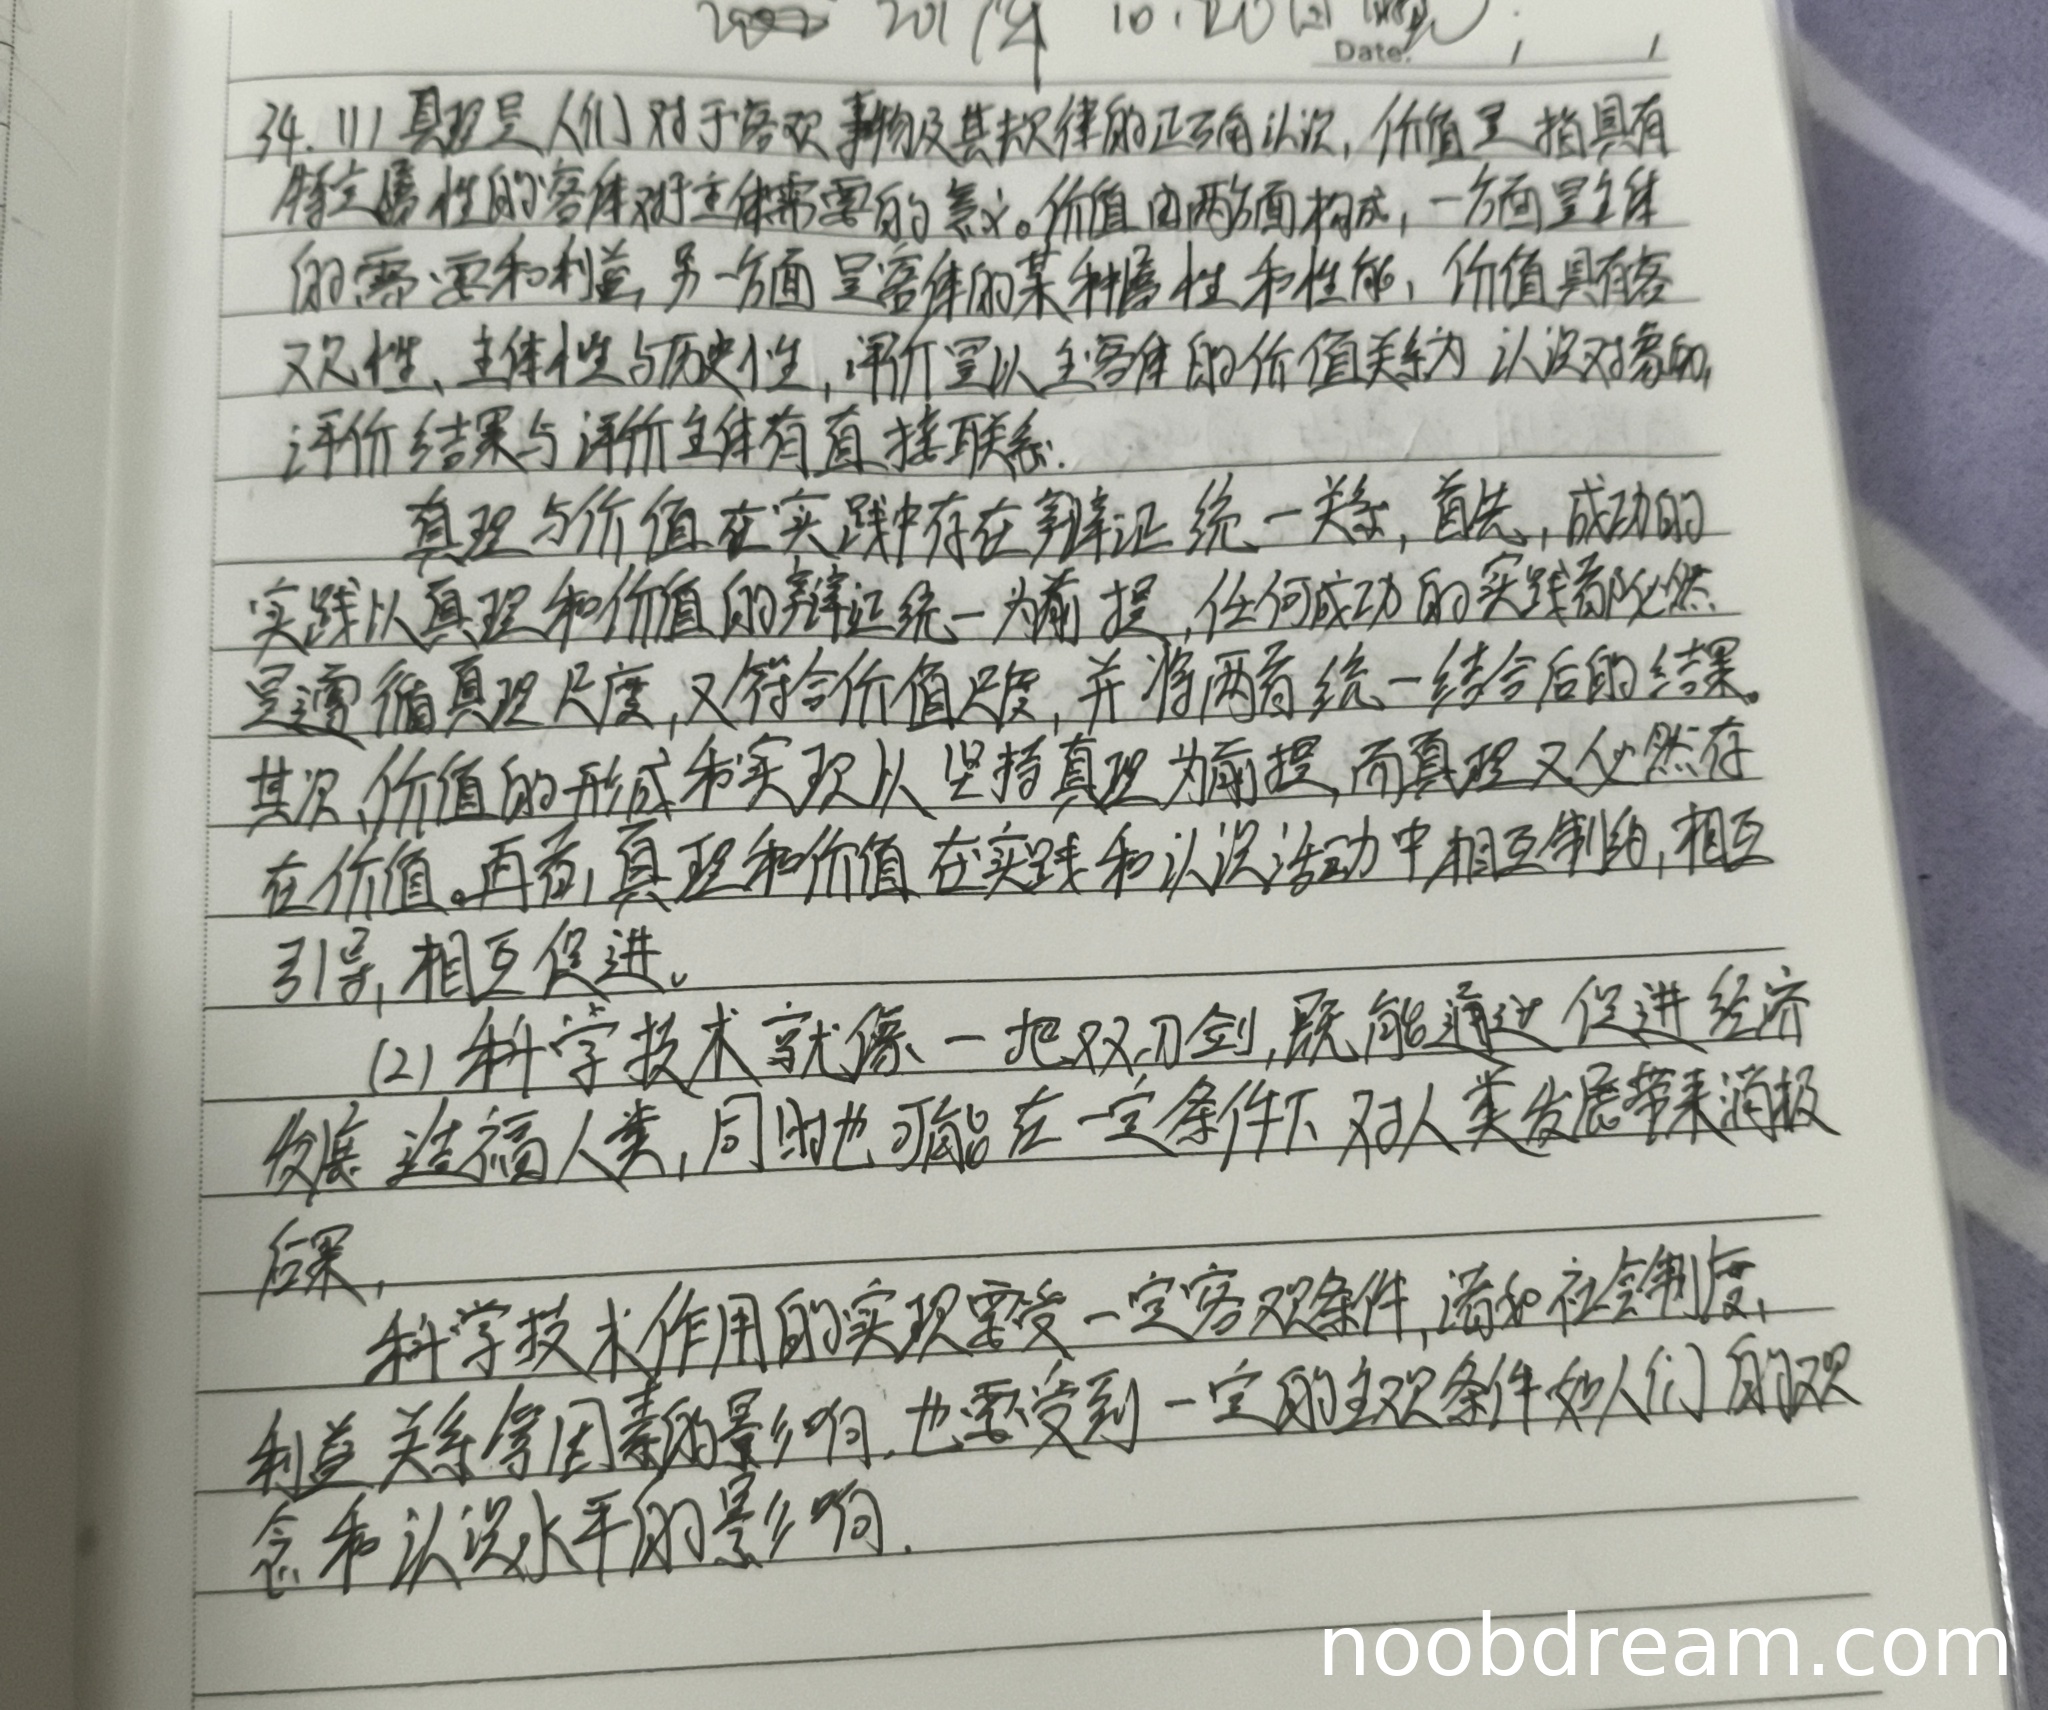 2017年 10.20
Date: / /
34. (1) 真理是人们对于客观事物及其规律的正确认识, 价值是指具有
特定属性的客体对于主体需要的意义。价值由两方面构成, 一方面是主体
的需要和利益, 另一方面是客体的某种属性和性能, 价值具有客
观性、主体性与历史性, 评价是以主客体的价值关系为认识对象的,
评价结果与评价主体有直接联系.
真理与价值在实践中存在辩证统一关系, 首先, 成功的
实践以真理和价值的辩证统一为前提, 任何成功的实践都必然
是遵循真理尺度, 又符合价值尺度, 并将两者统一结合后的结果。
其次、价值的形成和实现以坚持真理为前提, 而真理又必然存
在价值。再者, 真理和价值在实践和认识活动中相互制约, 相互
引导, 相互促进。
(2) 科学技术就像一把双刃剑, 既能通过促进经济
发展造福人类, 同时也可能在一定条件下对人类发展带来消极
后果,
科学技术作用的实现要受一定客观条件, 诸如社会制度、
利益关系等因素的影响, 也要受到一定的主观条件如人们的观
念和认识水平的影响.
noobdream.com